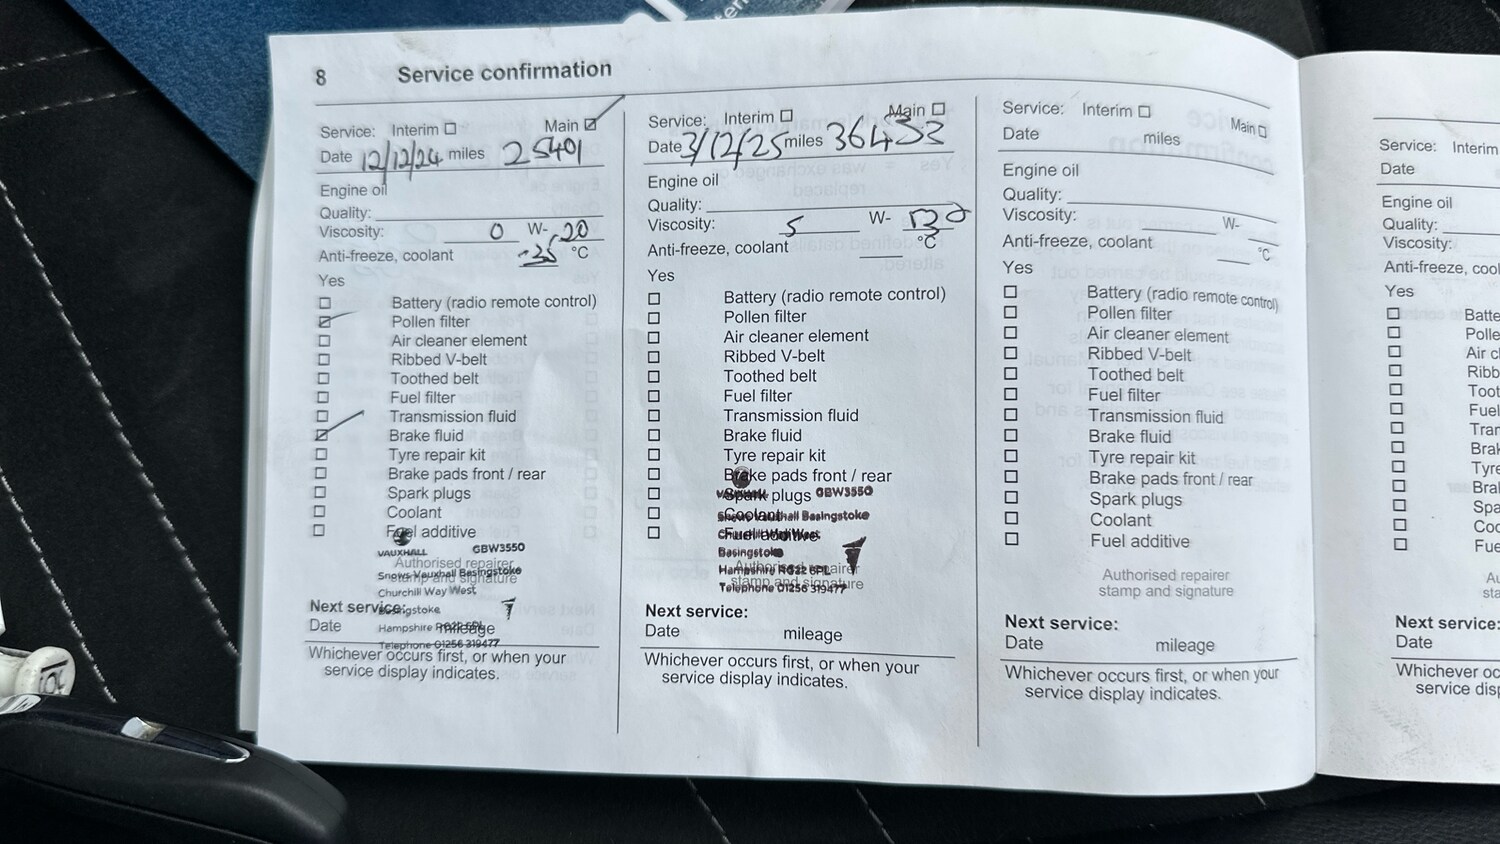 8 Service confirmation
Service: Interim Main
Date 12/12/24 miles 25401
Engine oil
Quality:
Viscosity: 0 W- 20
Anti-freeze, coolant -35 °C
Yes
Battery (radio remote control)
Pollen filter
Air cleaner element
Ribbed V-belt
Toothed belt
Fuel filter
Transmission fluid
Brake fluid
Tyre repair kit
Brake pads front / rear
Spark plugs
Coolant
Fuel additive
VAUXHALL GBW3550
Authorised repairer
Snows Vauxhall Basingstoke
stamp and signature
Churchill Way West
Next service:
Basingstoke
Date mileage
Hampshire RG22 6PL
Telephone 01256 319477
Whichever occurs first, or when your
service display indicates.
Service: Interim Main
Date 3/12/25 miles 36453
Engine oil
Quality:
Viscosity: 5 W- 30
Anti-freeze, coolant °C
Yes
Battery (radio remote control)
Pollen filter
Air cleaner element
Ribbed V-belt
Toothed belt
Fuel filter
Transmission fluid
Brake fluid
Tyre repair kit
Brake pads front / rear
Spark plugs
VAUXHALL GBW3550
Coolant
Snows Vauxhall Basingstoke
Fuel additive
Churchill Way West
Basingstoke
Authorised repairer
Hampshire RG22 6PL
stamp and signature
Telephone 01256 319477
Next service:
Date mileage
Whichever occurs first, or when your
service display indicates.
Service: Interim Main
Date miles
Engine oil
Quality:
Viscosity: W-
Anti-freeze, coolant °C
Yes
Battery (radio remote control)
Pollen filter
Air cleaner element
Ribbed V-belt
Toothed belt
Fuel filter
Transmission fluid
Brake fluid
Tyre repair kit
Brake pads front / rear
Spark plugs
Coolant
Fuel additive
Authorised repairer
stamp and signature
Next service:
Date mileage
Whichever occurs first, or when your
service display indicates.
Service: Interim
Date
Engine oil
Quality:
Viscosity:
Anti-freeze, cool
Yes
Batte
Polle
Air cl
Ribb
Toot
Fuel
Tran
Brak
Tyre
Brak
Spa
Coo
Fue
Au
sta
Next service:
Date
Whichever oc
service disp